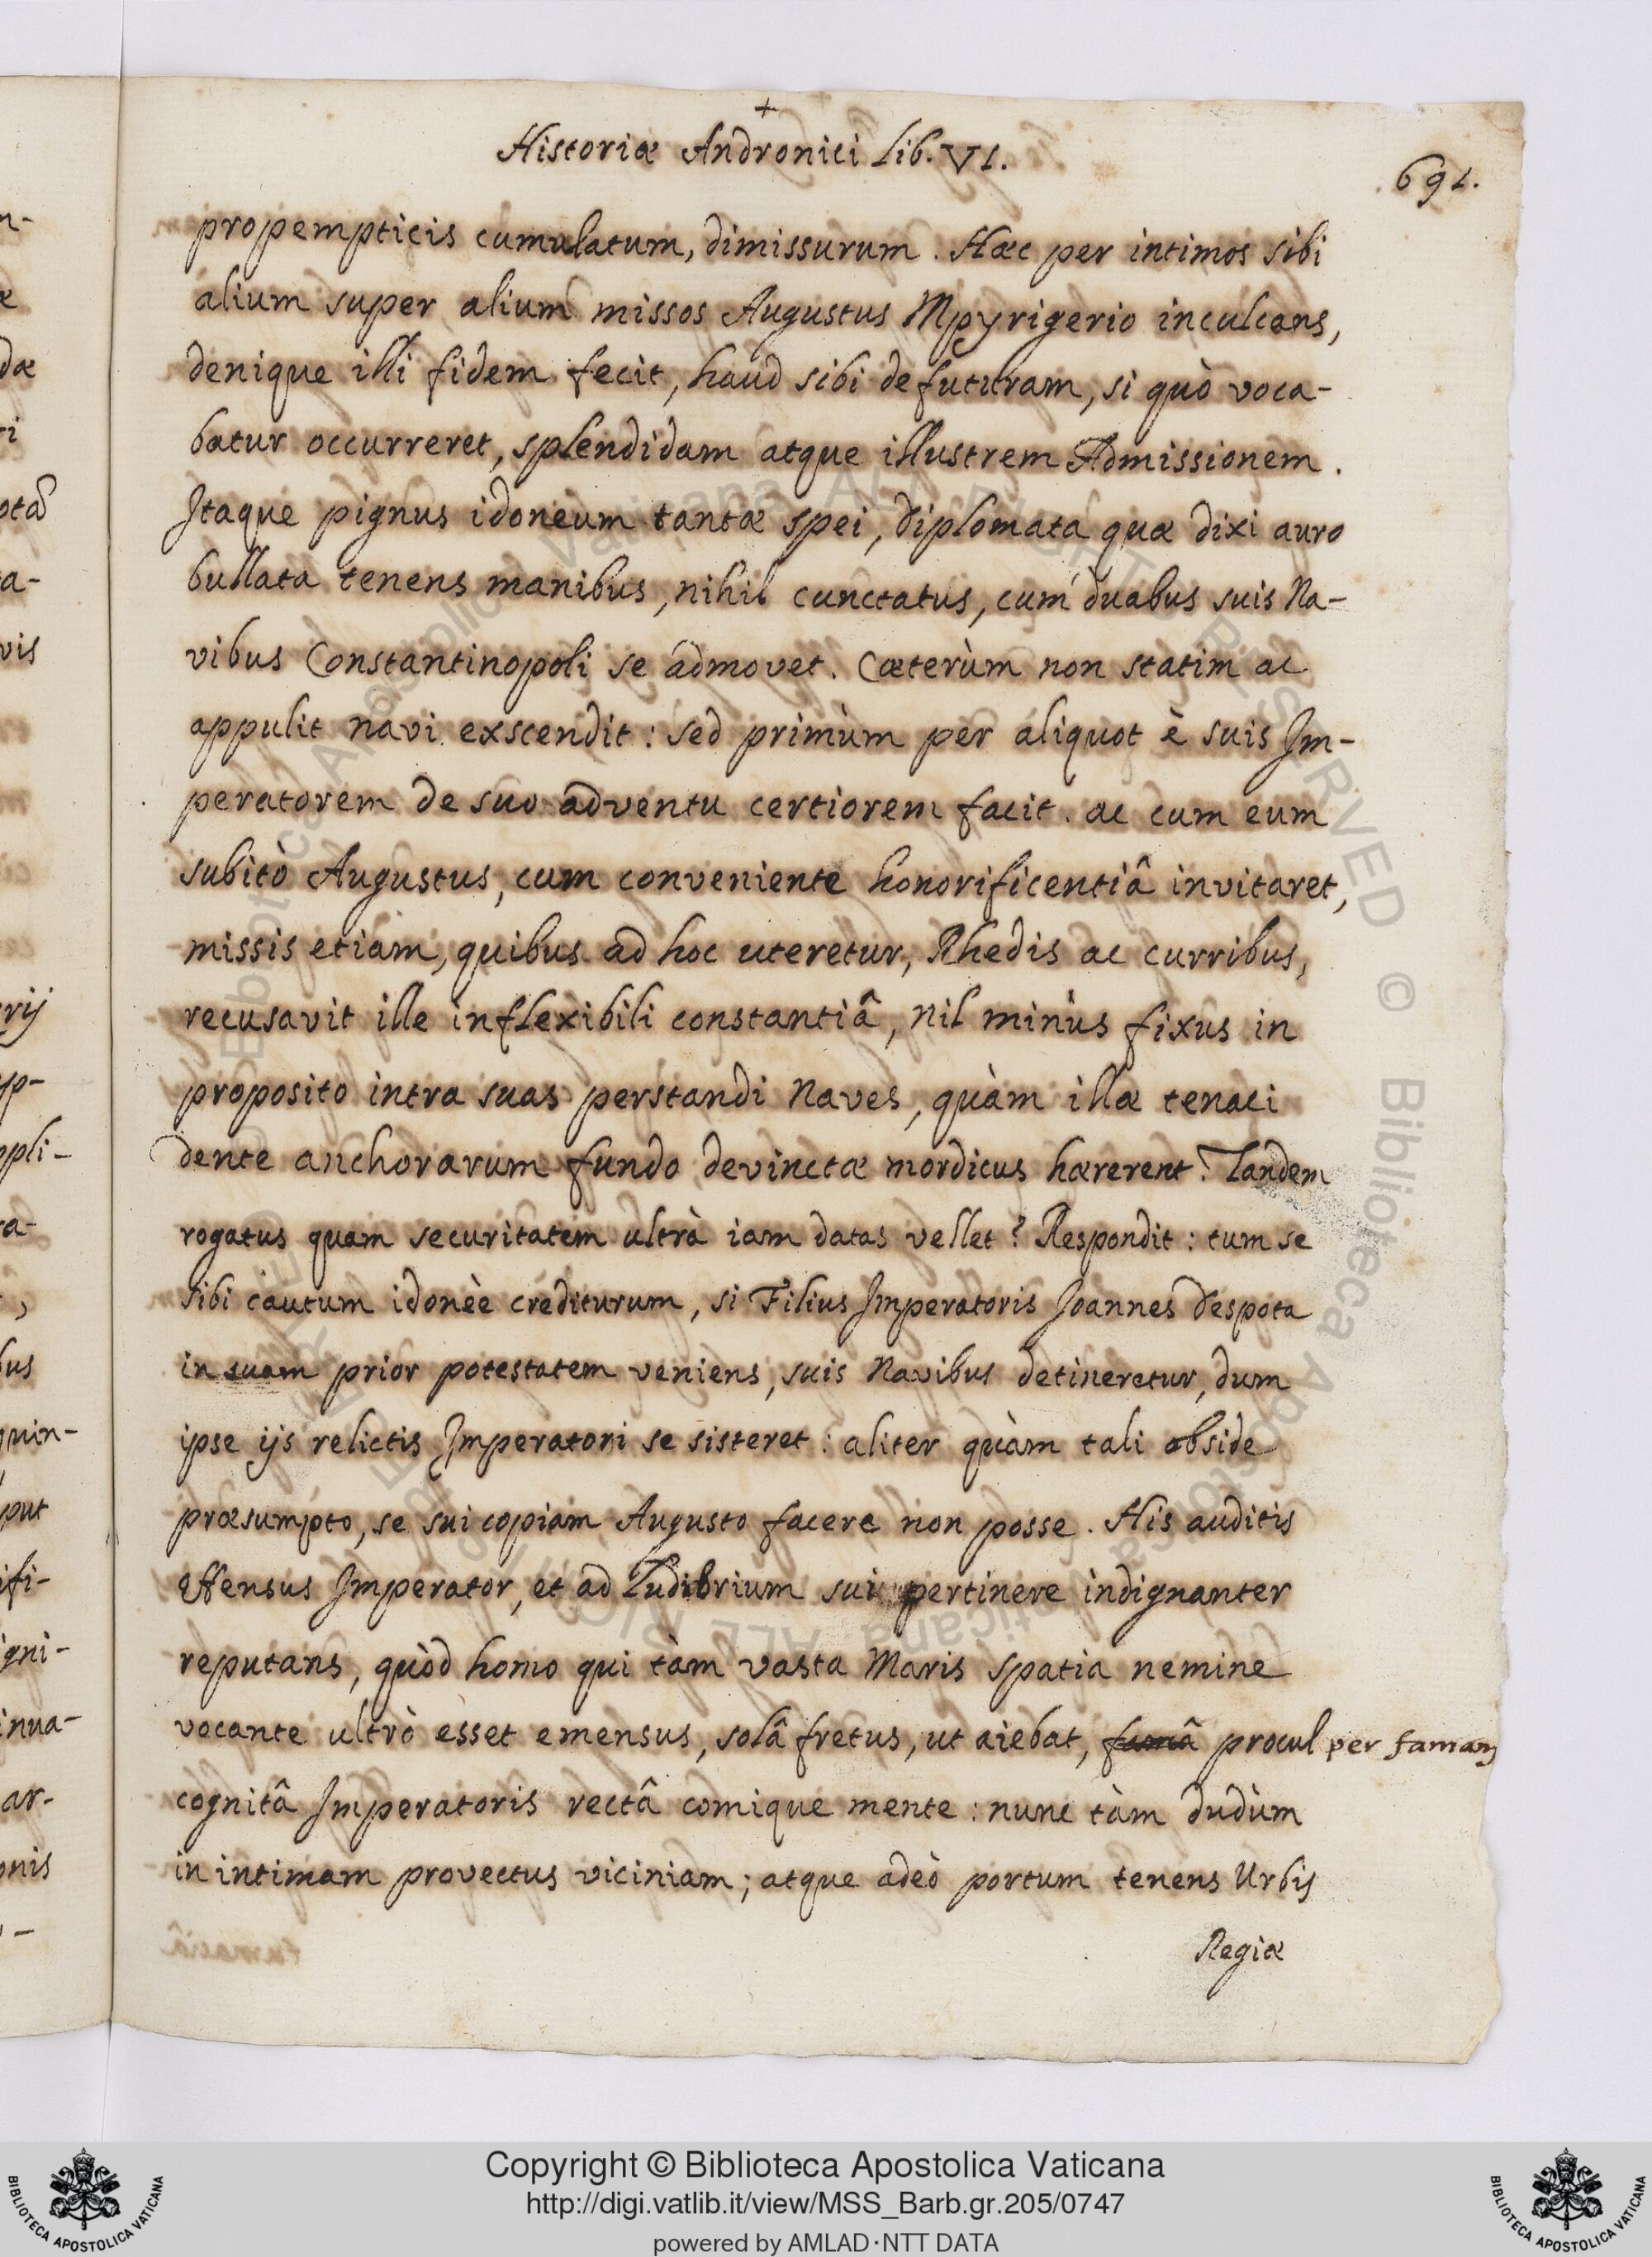 +
Historiæ Andronici Lib. VI.
691.
propempticis cumulatum, dimissurum. Hæc per intimos sibi
alium super alium missos Augustus Mpyrigerio inculcans,
denique illi fidem fecit, haud sibi defuturam, si quò voca-
batur occurreret, splendidam atque illustrem Admissionem.
Itaque pignus idoneum tantæ spei, diplomata quæ dixi auro
bullata tenens manibus, nihil cunctatus, cum duabus suis Na-
vibus Constantinopoli se admovet. Cæterùm non statim ac
appulit navi exscendit: sed primùm per aliquot è suis Im-
peratorem de suo adventu certiorem facit. ac cum eum
subitò Augustus, cum conveniente honorificentiâ invitaret,
missis etiam, quibus ad hoc uteretur, Rhedis ac curribus,
recusavit ille inflexibili constantiâ, nil minùs fixus in
proposito intra suas perstandi Naves, quàm illæ tenaci
dente anchorarum fundo devinctæ mordicus hærerent. Tandem
rogatus quam securitatem ultrà iam datas vellet? Respondit: tum se
sibi cautum idoneè crediturum, si Filius Imperatoris Joannes Despota
in suam prior potestatem veniens, suis Navibus detineretur, dum
ipse ijs relictis Imperatori se sisteret: aliter quàm tali obside
præsumpto, se sui copiam Augusto facere non posse. His auditis
offensus Imperator, et ad Ludibrium sui pertinere indignanter
reputans, quòd homo qui tàm vasta Maris spatia nemine
vocante ultrò esset emensus, solâ fretus, ut aiebat, famâ procul per famam
cognitâ Imperatoris rectâ comique mente: nunc tàm dudùm
in intimam provectus viciniam; atque adeò portum tenens Urbis
Regiæ
Copyright © Biblioteca Apostolica Vaticana
http://digi.vatlib.it/view/MSS_Barb.gr.205/0747
powered by AMLAD·NTT DATA
BIBLIOTECA APOSTOLICA VATICANA
BIBLIOTECA APOSTOLICA VATICANA